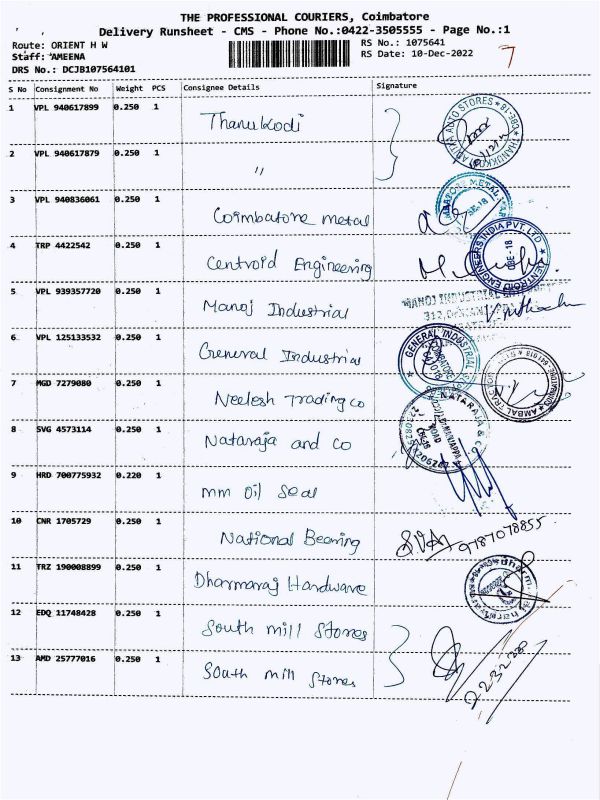 THE PROFESSIONAL COURIERS, Coimbatore
Delivery Runsheet - CMS - Phone No.:0422-3505555 - Page No.:1
Route: ORIENT H W
RS No.: 1075641
Staff: AMEENA
RS Date: 10-Dec-2022
7
DRS No.: DCJB107564101
S No Consignment No Weight PCS Consignee Details Signature
1 VPL 940617899 0.250 1 Thanukodi
2 VPL 940617879 0.250 1 "
3 VPL 940836061 0.250 1 Coimbatore metal
4 TRP 4422542 0.250 1 Centroid Engineering
5 VPL 939357720 0.250 1 Manoj Industrial
MANOJ INDUSTRIAL
6 VPL 125133532 0.250 1 General Industrial
GENERAL INDUSTRIAL
7 MGD 7279080 0.250 1 Neelesh Trading co
8 SVG 4573114 0.250 1 Nataraja and Co
NATARAJA & CO
9 HRD 700775932 0.220 1 mm oil seal
10 CNR 1705729 0.250 1 National Bearing 9787078855
11 TRZ 190008899 0.250 1 Dharmaraj Hardware
12 EDQ 11748428 0.250 1 South mill Stores
13 AMD 25777016 0.250 1 South mill Stores